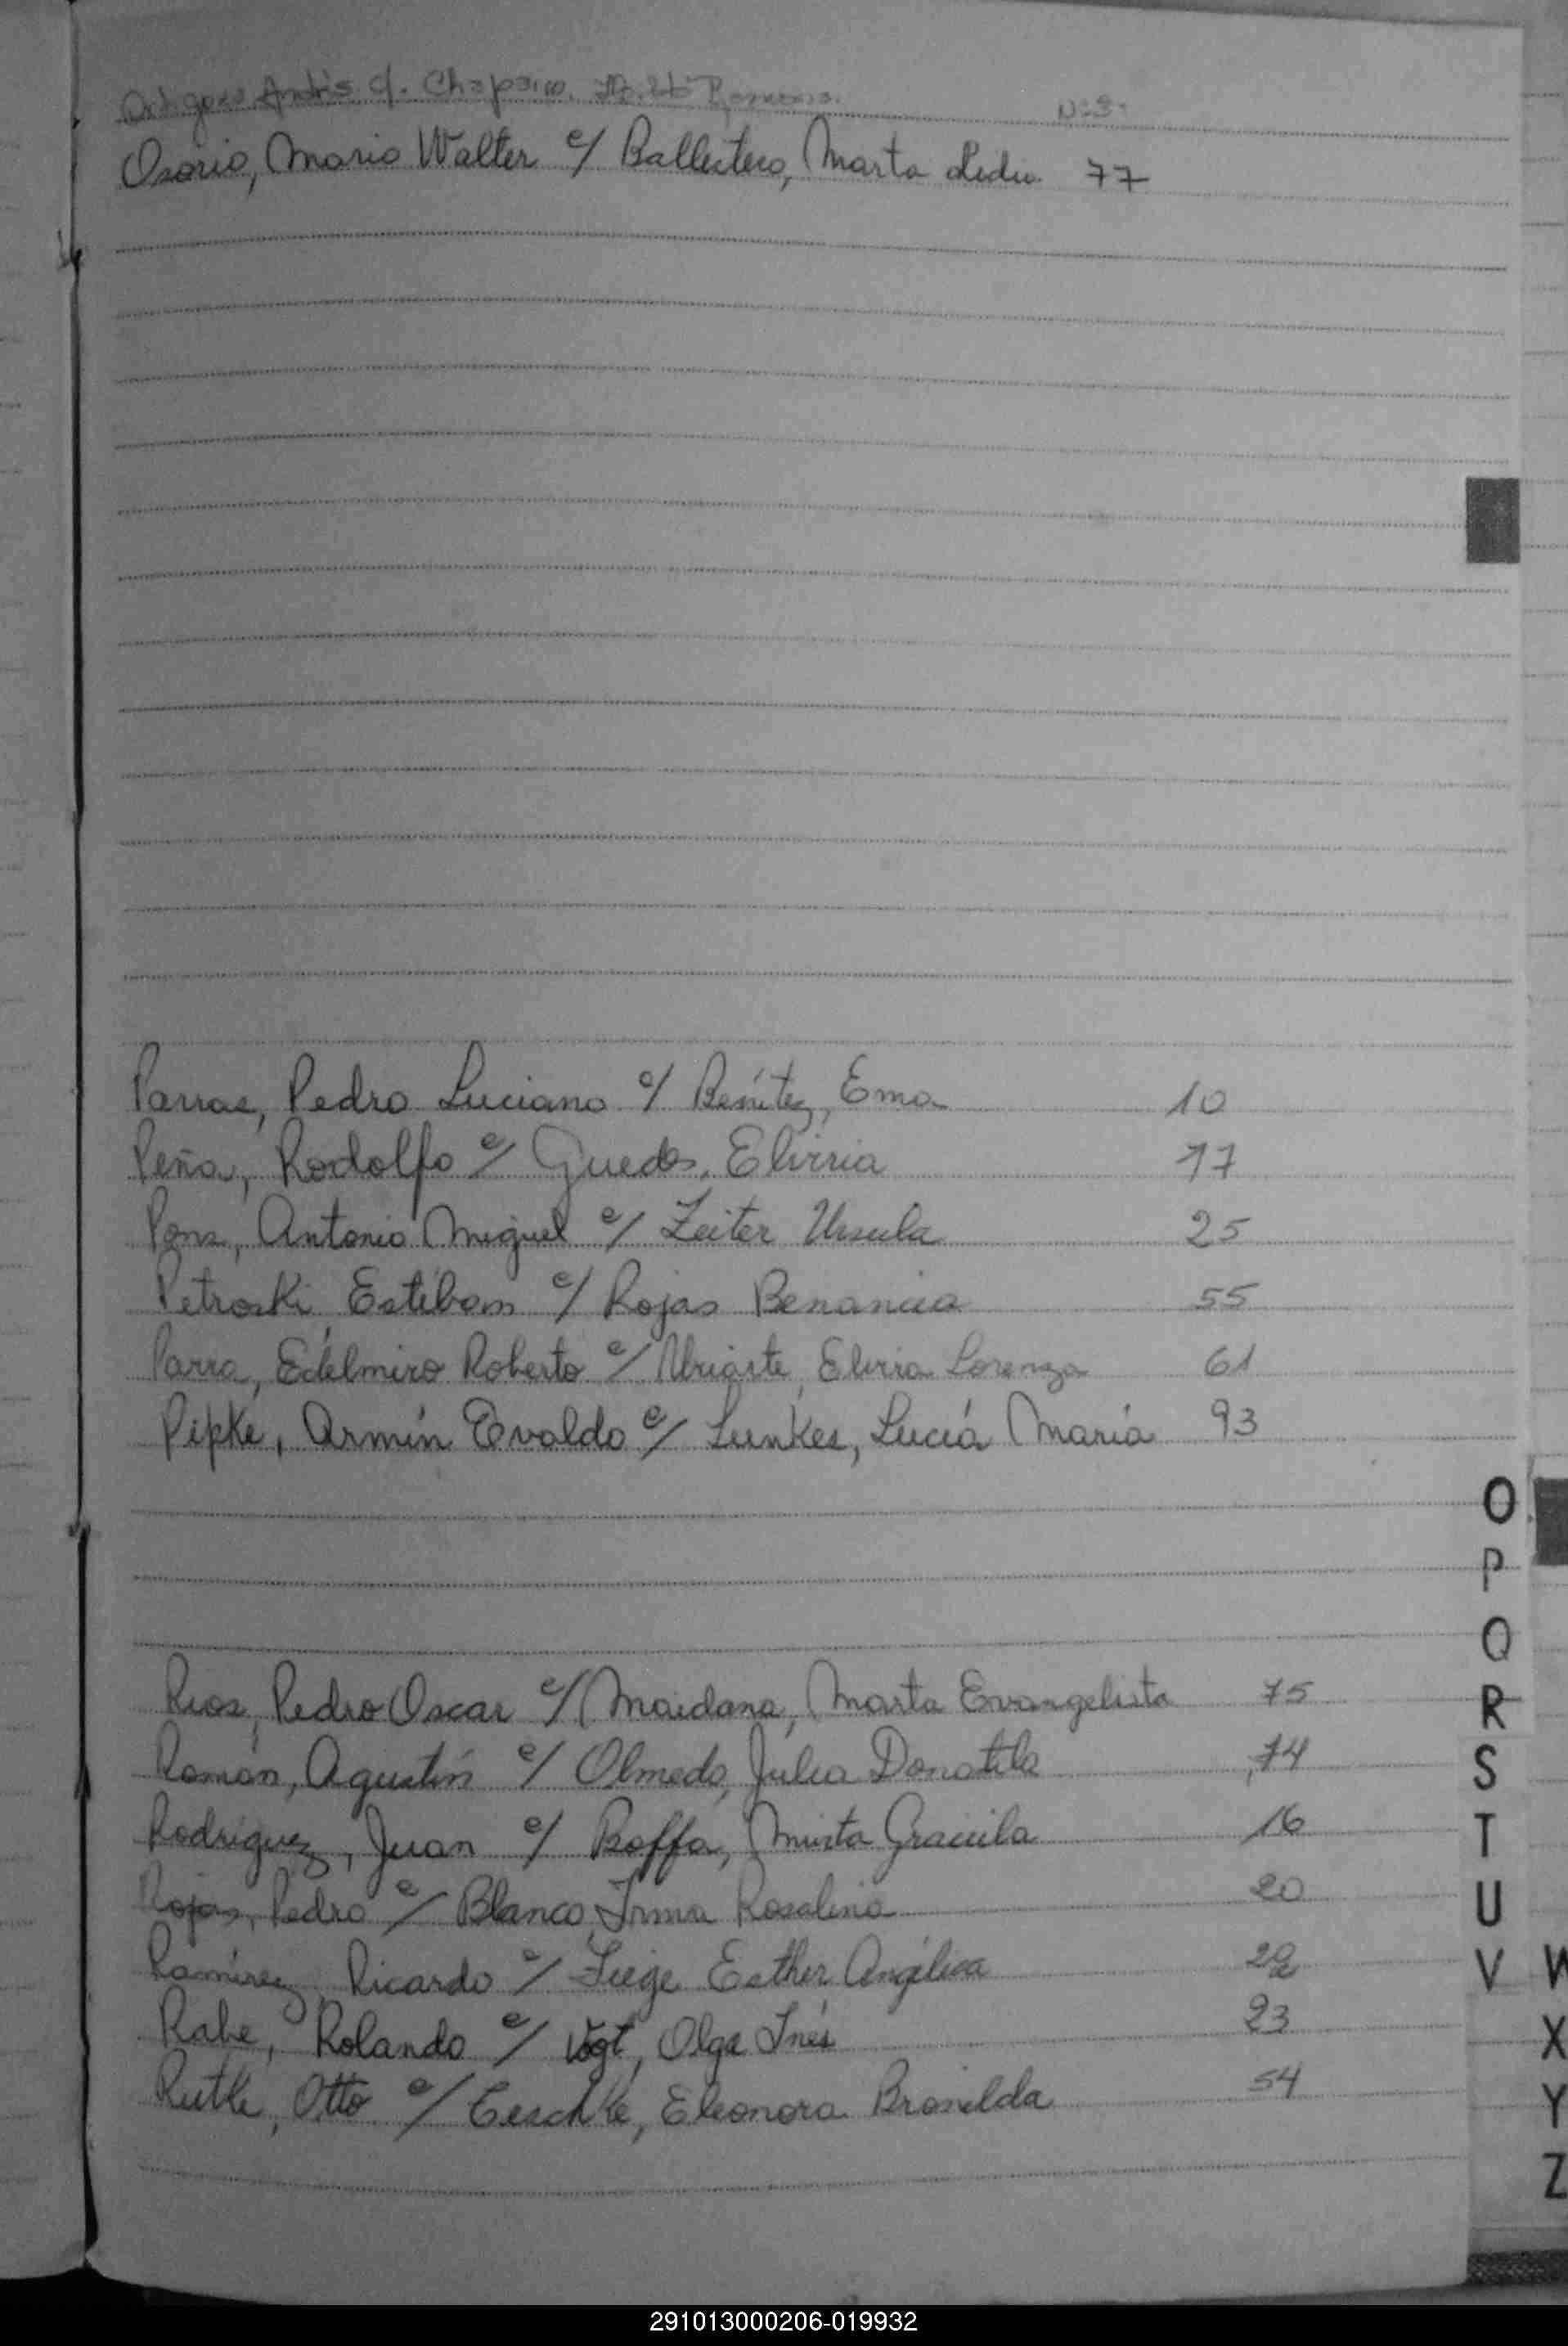 Ortigoza Andrés c/. Chaparro, Romona. Nº 3
Osorio, Mario Walter c/ Ballestero, Marta Lidia 77
Parras, Pedro Luciano c/ Benítez, Ema 10
Peña, Rodolfo c/ Guedes, Elvira 17
Pons, Antonio Miguel c/ Zeiter Ursula 25
Petroski Esteban c/ Rojas Benancia 55
Parra, Edelmiro Roberto c/ Uriarte, Elvira Lorenza 61
Pipke, Armín Evaldo c/ Lunkes, Lucía María 93
Rios, Pedro Oscar c/ Maidana, Marta Evangelista 75
Román, Agustín c/ Olmedo, Julia Donatila 14
Rodríguez, Juan c/ Boffa, Mirta Graciela 16
Rojas, Pedro c/ Blanco, Irma Rosalina 20
Ramírez, Ricardo c/ Esther Angélica
Rabe, Rolando c/ Vogt, Olga Inés 23
Otto c/ Eleonora Bronilda 54
O
P
Q
R
S
T
U
V W
X
Y
Z
291013000206-019932